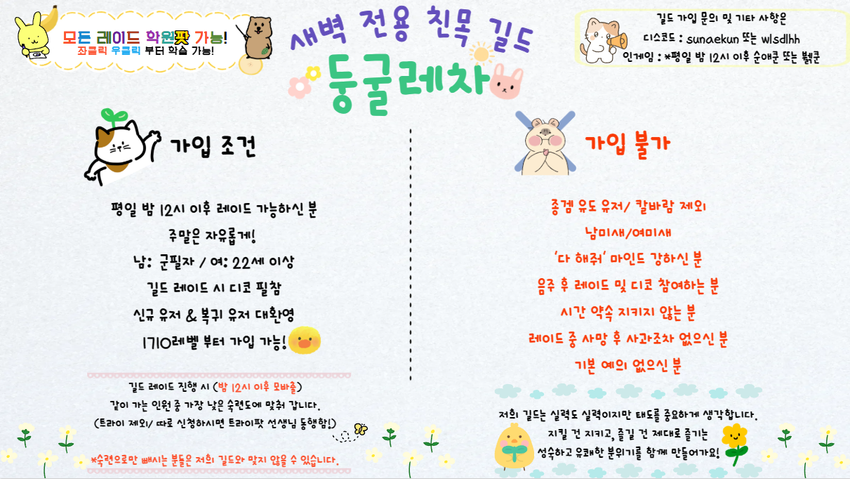 모든 레이드 학원팟 가능!
좌클릭 우클릭 부터 학습 가능!
새벽 전용 친목 길드
둥굴레차
길드 가입 문의 및 기타 사항은
디스코드 : sunaekun 또는 wlsdlhh
인게임 : *평일 밤 12시 이후 순애쿤 또는 쿤
가입 조건
평일 밤 12시 이후 레이드 가능하신 분
주말은 자유롭게!
남: 군필자 / 여: 22세 이상
길드 레이드 시 디코 필참
신규 유저 & 복귀 유저 대환영
1710레벨 부터 가입 가능!
길드 레이드 진행 시 (밤 12시 이후 모바출)
같이 가는 인원 중 가장 낮은 숙련도에 맞춰 갑니다.
(트라이 제외/ 따로 신청하시면 트라이팟 선생님 동행함!)
*숙련으로만 빼시는 분들은 저희 길드와 맞지 않을 수 있습니다.
가입 불가
종겜 유도 유저/ 칼바람 제외
남미새/여미새
'다 해줘' 마인드 강하신 분
음주 후 레이드 및 디코 참여하는 분
시간 약속 지키지 않는 분
레이드 중 사망 후 사과조차 없으신 분
기본 예의 없으신 분
저희 길드는 실력도 실력이지만 태도를 중요하게 생각합니다.
지킬 건 지키고, 즐길 건 제대로 즐기는
성숙하고 유쾌한 분위기를 함께 만들어가요!